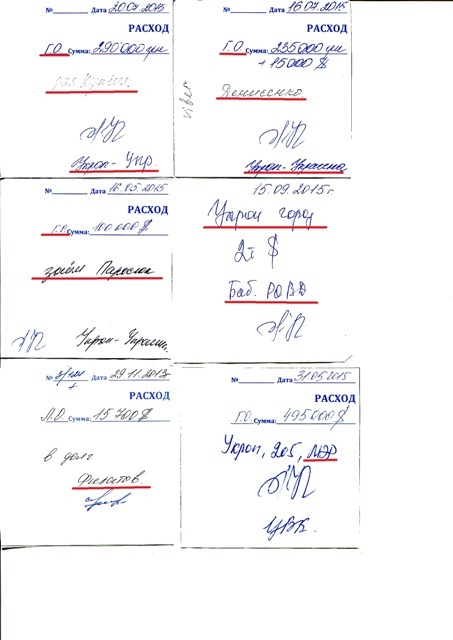 № Дата 20.07.2015
РАСХОД
Г.О. Сумма: 290000грн
Укроп-Укр.
№ Дата 16.07.2015
РАСХОД
Г.О. Сумма: 235000грн
+15000 $
Viber
Денисенко
Укроп-Украина
№ Дата 16.05.2015
РАСХОД
Сумма: 100000$
займ
Укроп-Украин.
15.09.2015г
Укроп город
$
Баб. РОВД
№ Дата 29.11.2013г
РАСХОД
Л.О. Сумма: 15700$
в долг
Филатов.
№ Дата 31.05.2015
РАСХОД
Г.О. Сумма: 495000$
Укроп, 205,